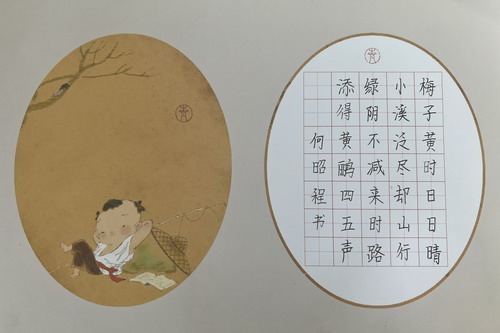 梅子黄时日日晴
小溪泛尽却山行
绿阴不减来时路
添得黄鹂四五声
何昭程书